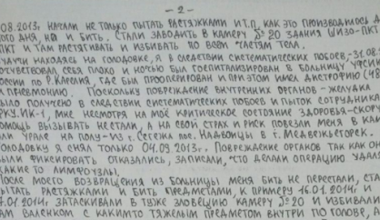 - 2 -
08.2013, начали не только пытать растяжками и т.п. как это производилось д
ого дня, но и бить. Стали заводить в камеру № 20 здания ШИЗО-ПКТ
ПКТ и там растягивать и избивать по всем частям тела.
будучи находясь на голодовке, и в следствии систематических побоев, 31.08
почувствовал себя плохо и ночью был госпитализирован в больницу УФСИН
России по Р. Карелия, где был прооперирован и при этом имел дистрофию
и пневмонию. Поскольку повреждение внутренних органов - желудка
было получено в следствии систематических побоев и пыток сотрудника
ФКУ.ИК-1, мне несмотря на моё критическое состояние здоровья - скорую
помощь вызывать не стали, а на свой страх и риск повезли меня в
"Урале" на полу - из г. Сегежа пос. Надвоицы в г. Медвежьегорск.
Голодовку я снял только 04.09.2013г. Повреждение органов так как они
были фиксировать отказались, записали, что делали операцию удаля
какие то лимфоузлы.
После моего возвращения из больницы меня бить не перестали, ста
пытать растяжками и бить предметами, к примеру 16.01.2014 и
.01.2014, затаскивали в туже зловещую камеру № 20 и избивали
валенком с каким то тяжёлым предметом внутри по голове,